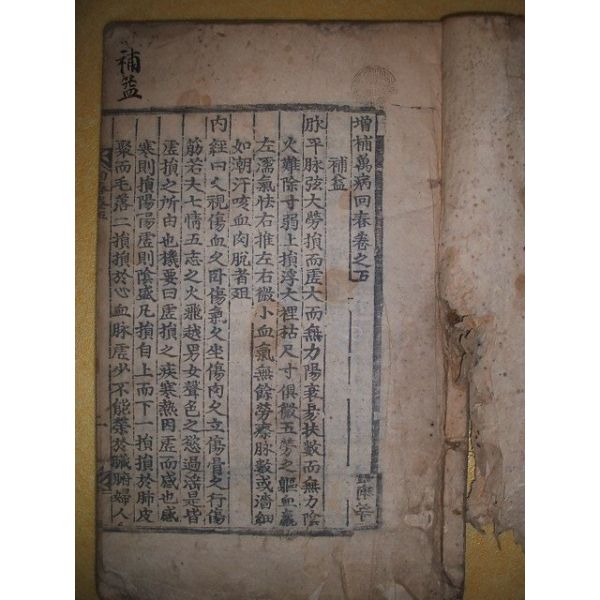 補益
增補萬病回春卷之五
補益
脉平脉弦大勞損而虛大而無力陽衰易扶數而無力陰
火難除寸弱上損浮大裡枯尺寸俱微五勞之軀血羸
左濡氣怯右推左右微小血氣無餘勞瘵脉數或濇細
如潮汗咳血肉脫者殂
內經曰久視傷血久臥傷氣久坐傷肉久立傷骨久行傷
筋若夫七情五志之火飛越男女聲色之慾過淫是皆
虛損之所由也機要曰虛損之疾寒熱因虛而感也感
寒則損陽陽虛則陰盛凡損自上而下一損損於肺皮
聚而毛落二損損於心血脉虛少不能榮於臟腑婦人